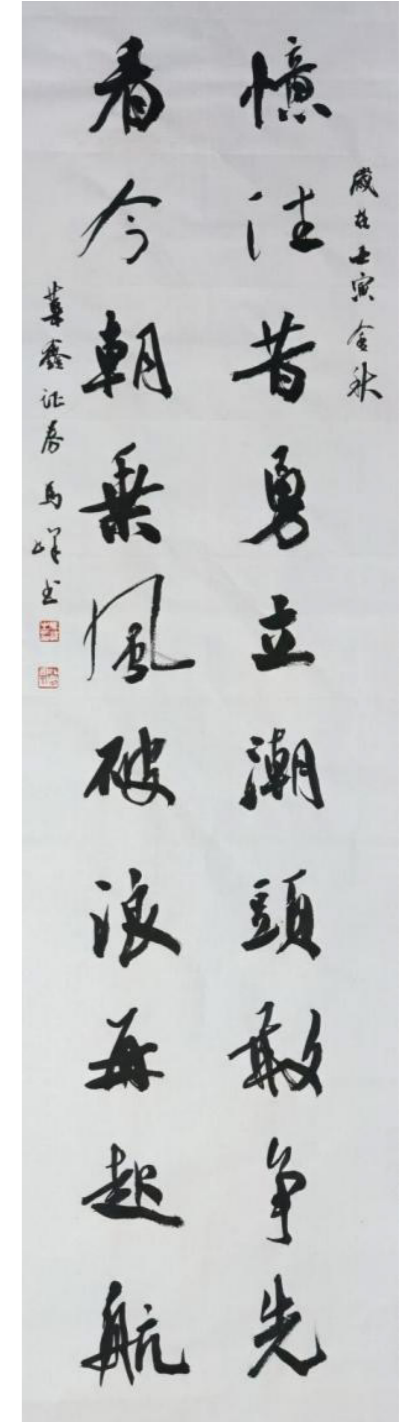 歲在壬寅金秋
憶往昔勇立潮頭敢争先
看今朝乘風破浪再起航
華鑫证券馬峰书